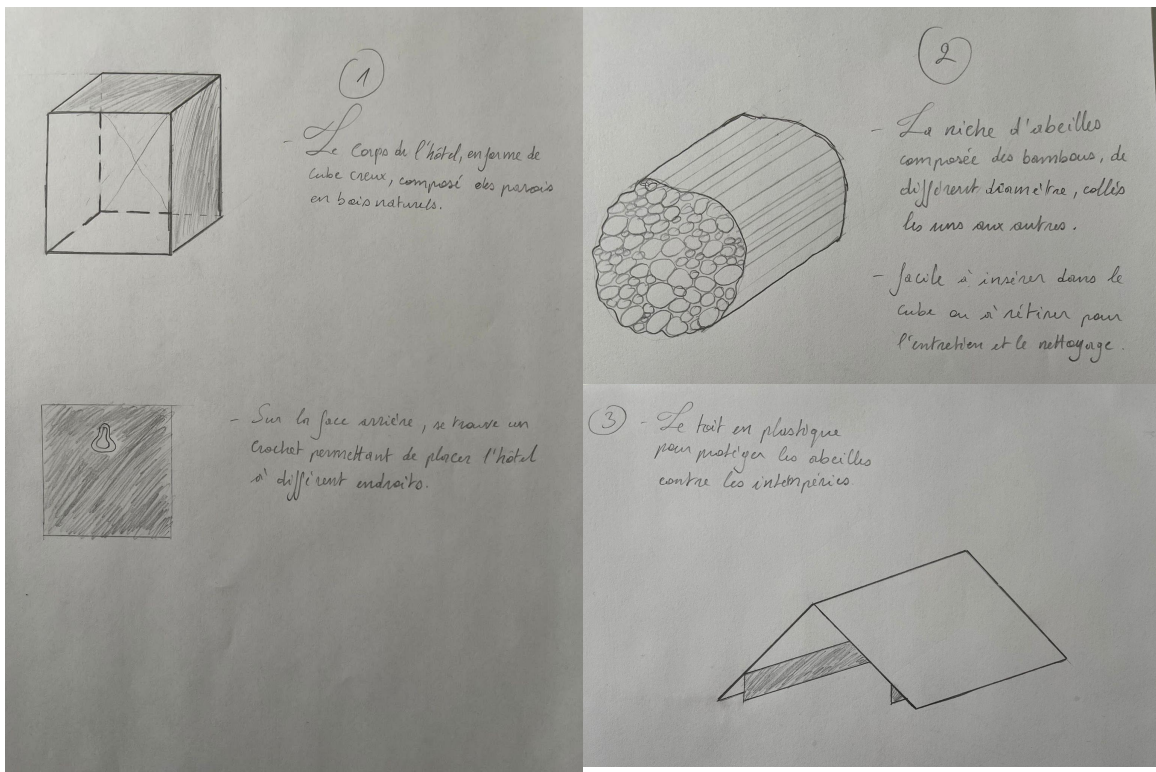 1
- Le Corps de l'hôtel, en forme de
cube creux, composé des parois
en bois naturels.
- Sur la face arrière, se trouve un
crochet permettant de placer l'hôtel
à différent endroits.
2
- La niche d'abeilles
composée des bambous, de
différent diamètre, collés
les uns aux autres.
- facile à insérer dans le
cube ou à rétirer pour
l'entretien et le nettoyage.
3 - Le toit en plastique
pour protéger les abeilles
contre les intempéries